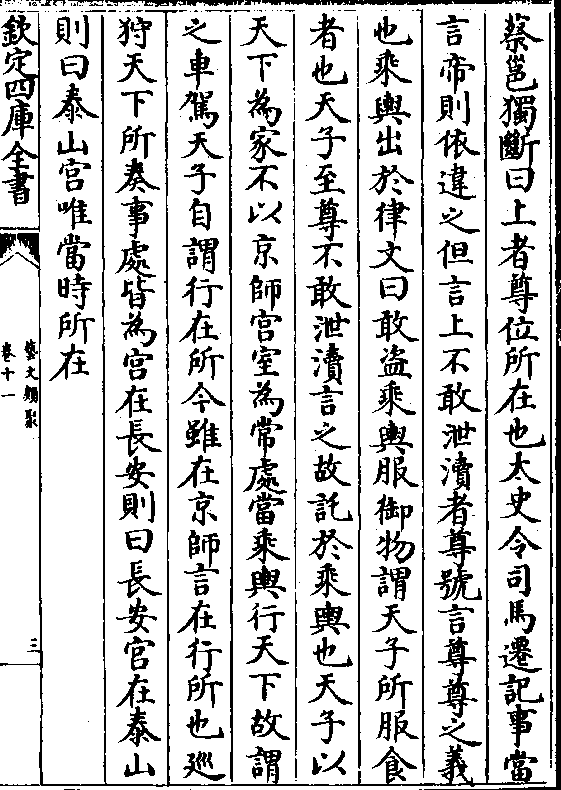 蔡邕獨斷曰上者尊位所在也太史令司馬遷記事當
言帝則依違之但言上不敢泄瀆者尊號言尊尊之義
也乘輿出於律文曰敢盗乘輿服御物謂天子所服食
者也天子至尊不敢泄瀆言之故託於乘輿也天子以
天下為家不以京師宫室為常處當乘輿行天下故謂
之車駕天子自謂行在所今雖在京師言在行所也廵
狩天下所奏事處皆為宫在長安則曰長安宫在泰山
則曰泰山宫唯當時所在
欽定四庫全書
藝文類聚
卷十一
三